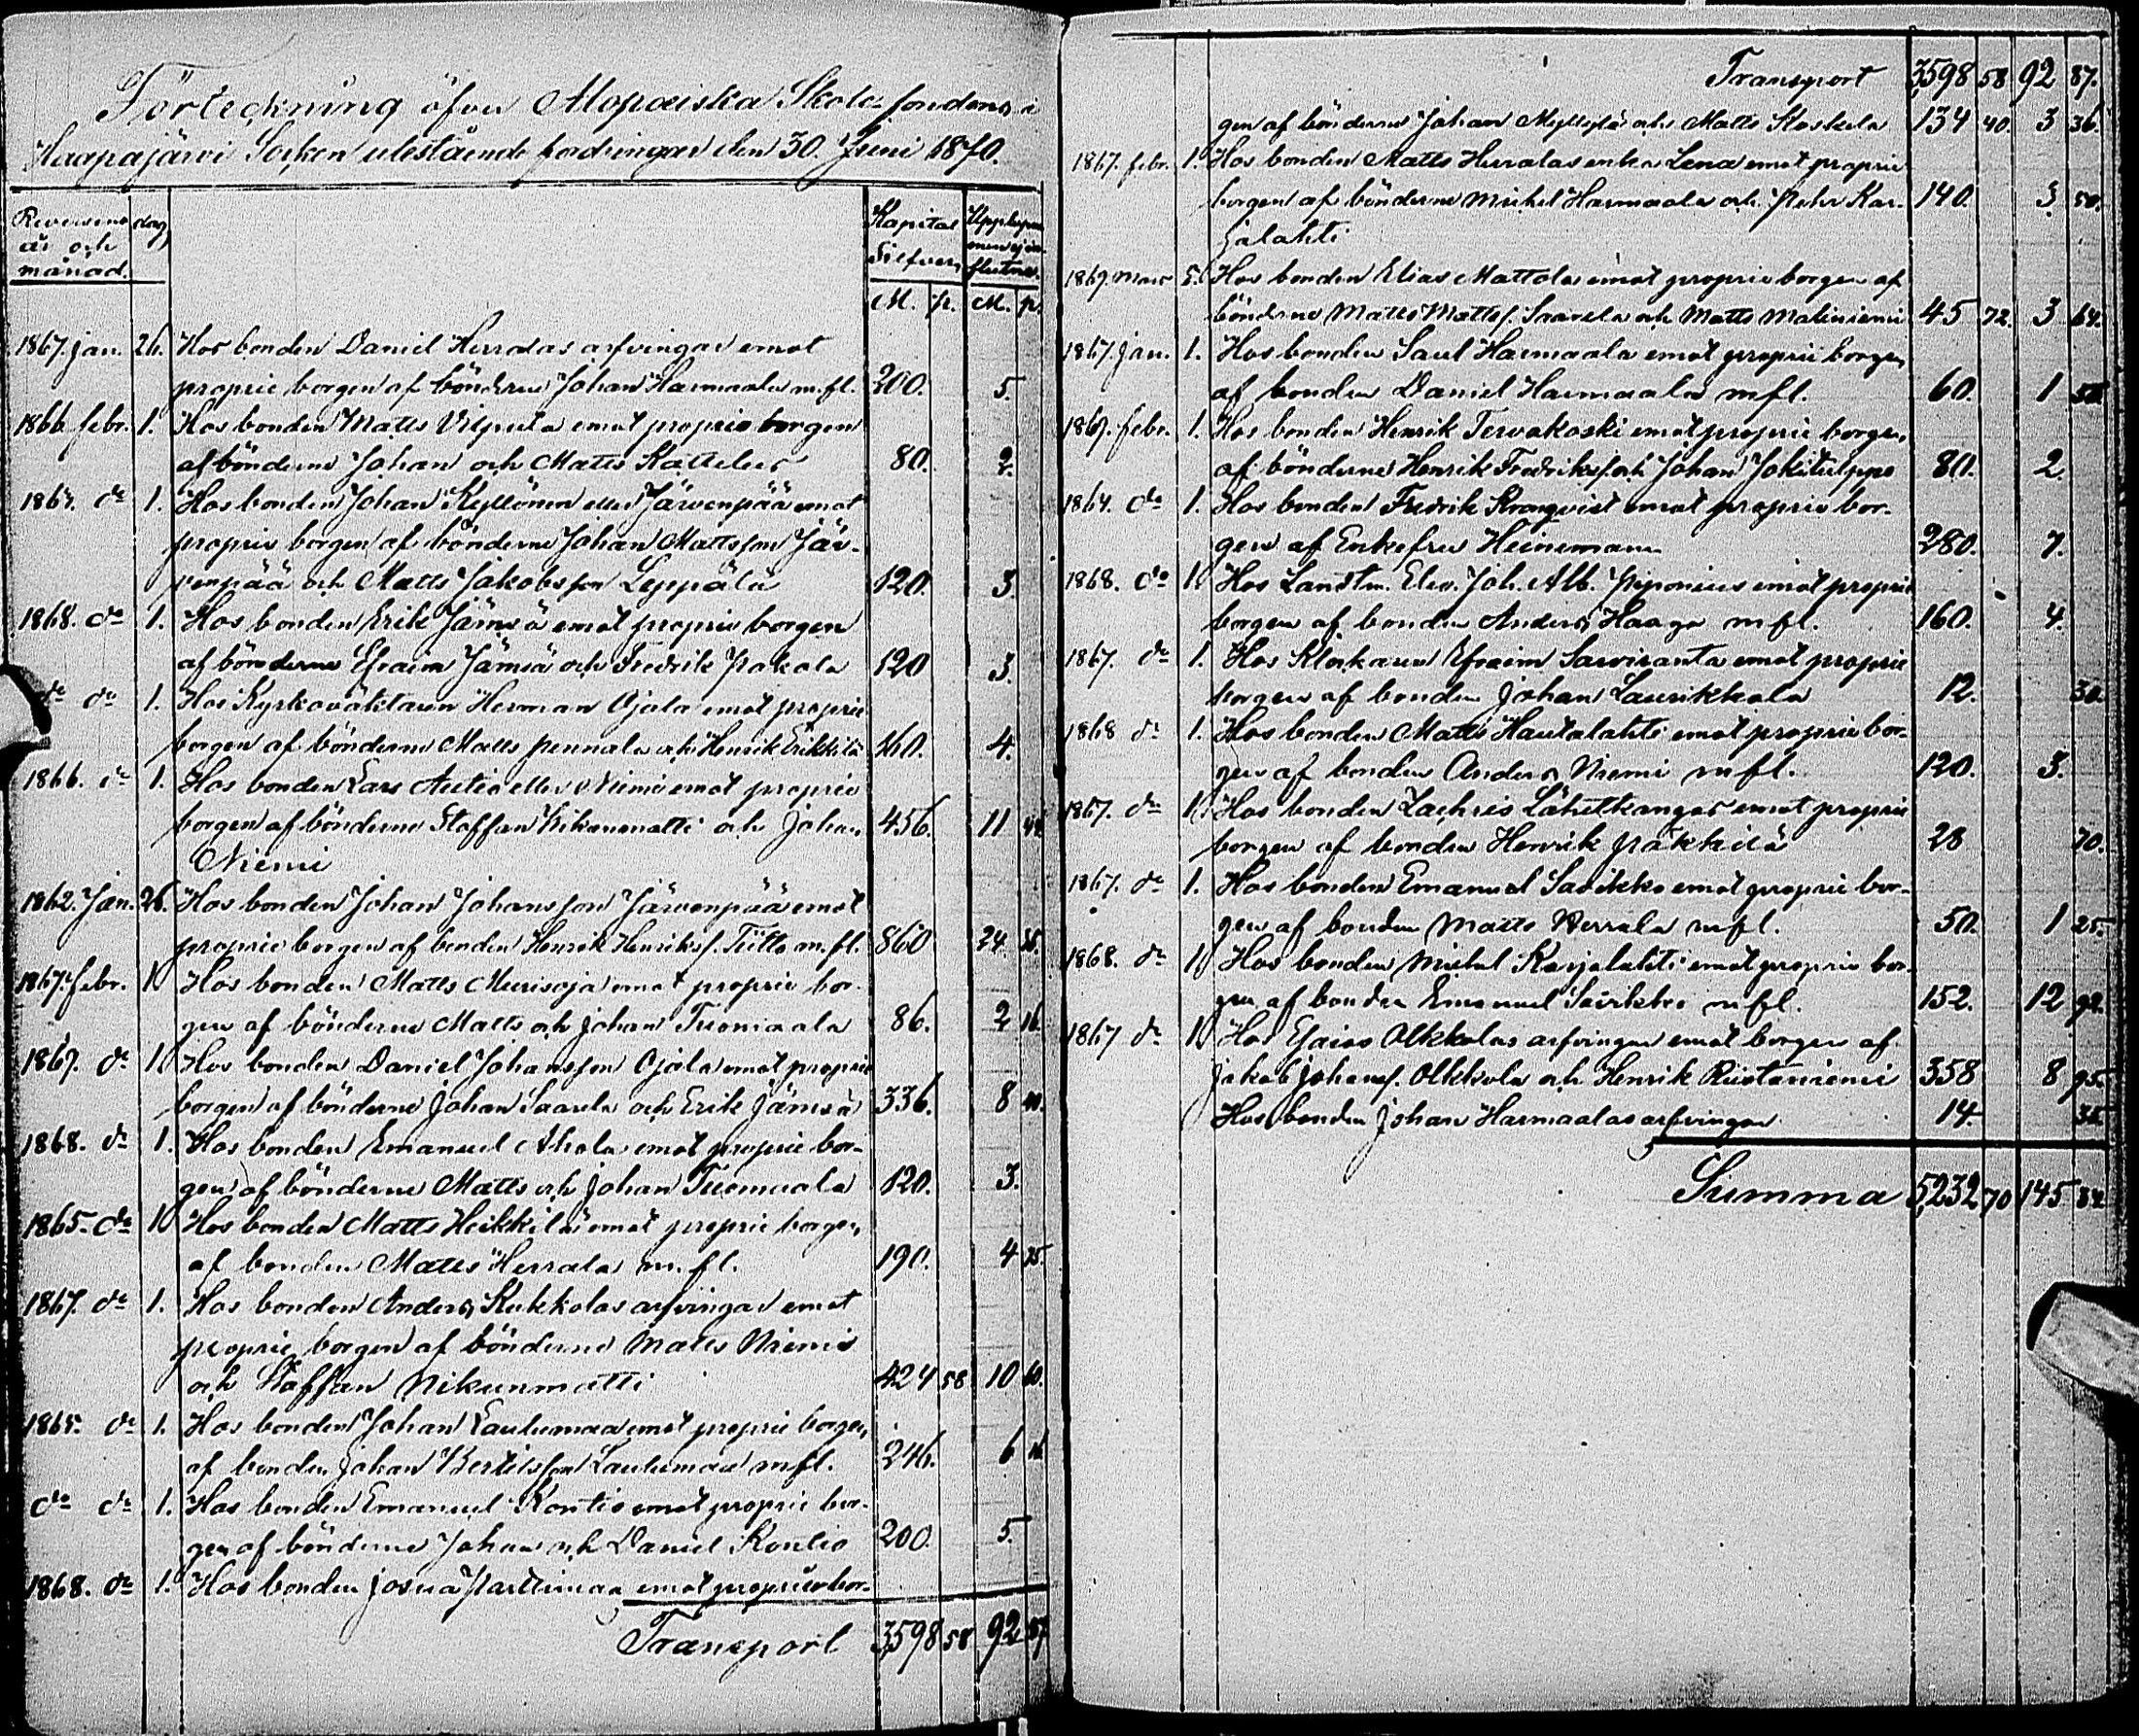 Förteckning öfver Alopæiska Skolefondens i
Haapajärvi Socken utestående fordringar den 30. Juni 1870.
Reversens år och månad. dag Kapital Silfver, Upplupna men ej influtna.
M. p. M. p.
1867. jan. 26. Hos bonden Daniel Herralas arfvingar emot
proprie borgen af bönderne Johan Harmaala m.fl. 200. 5.
1866 febr. 1. Hos bonden Matts Vilpula emot proprie borgen
af bönderne Johan och Matts 80. 2.
1867. do 1. Hos bonden Johan Kyllönen eller Järvenpää emot
proprie borgen af bönderne Johan Mattsson Jär-
venpää och Matts Jakobsson Leppälä 120. 3.
1868. do 1. Hos bonden Erik Jämsä emot proprie borgen
af bönderne Efraim Jämsä och Fredrik Pakola 120 3.
do do 1. Hos Kyrkoväktaren Herman Ojala emot proprie
borgen af bönderne Matts Pennala och Henrik Erkkilä 160. 4.
1866. do 1. Hos bonden Lars Autio eller Niemi emot proprie
borgen af bönderne Staffan Nikunmatti och Johan 456. 11
Niemi
1862. Jan. 26. Hos bonden Johan Johansson Järvenpää emot
proprie borgen af bonden Henrik Henrikss. Tiitto m.fl. 860 24
1867. febr. 1. Hos bonden Matts Murisoja emot proprie bor-
gen af bönderne Matts och Johan Tuomaala 86. 2 16.
1867. do 1. Hos bonden Daniel Johansson Ojala emot proprie
borgen af bönderne Johan Saarela och Erik Jämsä 336. 8 40.
1868. do 1. Hos bonden Emanuel Ahola emot proprie bor-
gen af bönderne Matts och Johan Tuomaala 120. 3.
1865. do 1. Hos bonden Matts Heikkilä emot proprie borgen
af bonden Matts Herrala m.fl. 190. 4 75.
1867. do 1. Hos bonden Anders Kukkolas arfvingar emot
proprie borgen af bönderne Matts Niemi
och Staffan Nikunmatti 424 58 10 60.
1865. do 1. Hos bonden Johan Laulumaa emot proprie borgen
af bonden Johan Bertilsson Laulumaa m.fl. 246. 6
do do 1. Hos bonden Emanuel Kontio emot proprie bor-
gen af bönderne Johan och Daniel Kontio 200. 5.
1868. do 1. Hos bonden Josua Parttimaa emot proprie bor-
Transport 3,598 58 92 87
Transport 3,598 58 92 87.
gen af bönderne Johan Myllylä och Matts Koskela 134 40. 3 36.
1867. febr. 1. Hos bonden Matts Herralas enka Lena emot proprie
borgen af bönderne Mickel Harmaala och Pehr Kar- 140. 3 50.
jalahti
1869. mars 5. Hos bonden Elias Mattola emot proprie borgen af
bönderne Matts Mattss. Saarela och Matts Maliniemi 45 72. 3 64.
1867. jan. 1. Hos bonden Saul Harmaala emot proprie borgen
af bonden Daniel Harmaala m.fl. 60. 1 50.
1867. febr. 1. Hos bonden Henrik Tervakoski emot proprie borgen
af bönderne Henrik Fredrikss. och Johan Jokitulppo 80. 2.
1864. do 1. Hos bonden Fredrik Kronqvist emot proprie bor-
gen af Enkefru Heinemann 280. 7.
1868. do 1. Hos Landtm. Elev. Joh. Alb. Piponius emot proprie
borgen af bonden Anders Haaga m.fl. 160. 4.
1867. do 1. Hos Klockaren Efraim Sarviranta emot proprie
borgen af bonden Johan Laurikkala 12. 30.
1868 do 1. Hos bonden Matts Hautalahti emot proprie bor-
gen af bonden Anders Niemi m.fl. 120. 3.
1867. do 1. Hos bonden Zachris Lähetkangas emot proprie
borgen af bonden Henrik 28 70.
1867. do 1. Hos bonden Emanuel Savikko emot proprie bor-
gen af bonden Matts Herrala m.fl. 50. 1 25.
1868. do 1. Hos bonden Mickel Karjalahti emot proprie bor-
gen af bonden Emanuel Savikko m.fl. 152. 12 92.
1867 do 1. Hos Esaias Olkkolas arfvingar emot borgen af
Jakob Johanss. Olkkola och Henrik Ristaniemi 358 8 95.
Hos bonden Johan Harmaalas arfvingar 14. 35.
Summa 5,232 70 145. 84.